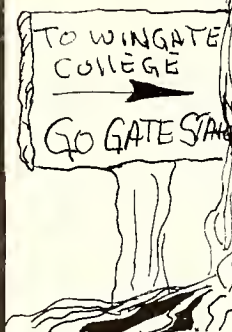 TO WINGATE
COLLEGE
GO GATE